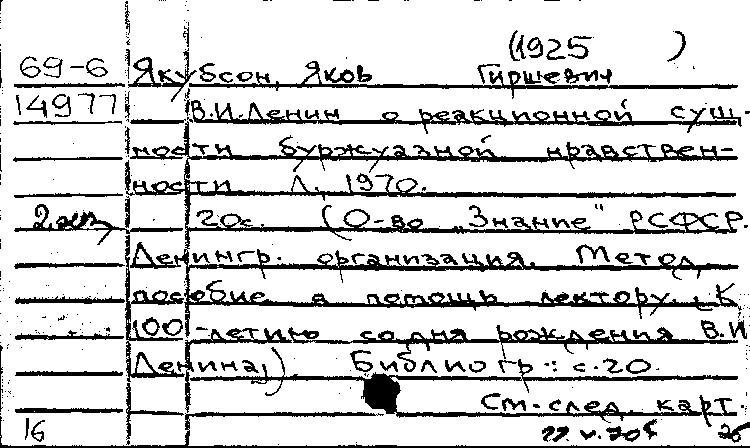 (1925 )
69-6 Якубсон, Яков Гиршевич
14977 В.И.Ленин о реакционной сущ-
ности буржуазной нравствен-
ности. Л., 1970.
2 экз 20с. (О-во „Знание" РСФСР.
Ленингр. организация. Метод.
пособие в помощь лектору. К
100-летию со дня рождения В.И
Ленина). Библиогр.: с.20.
См. след. карт.
16